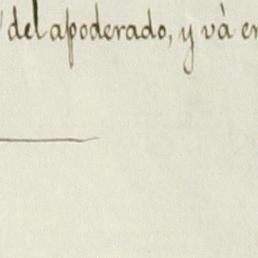 del apoderado, y và en